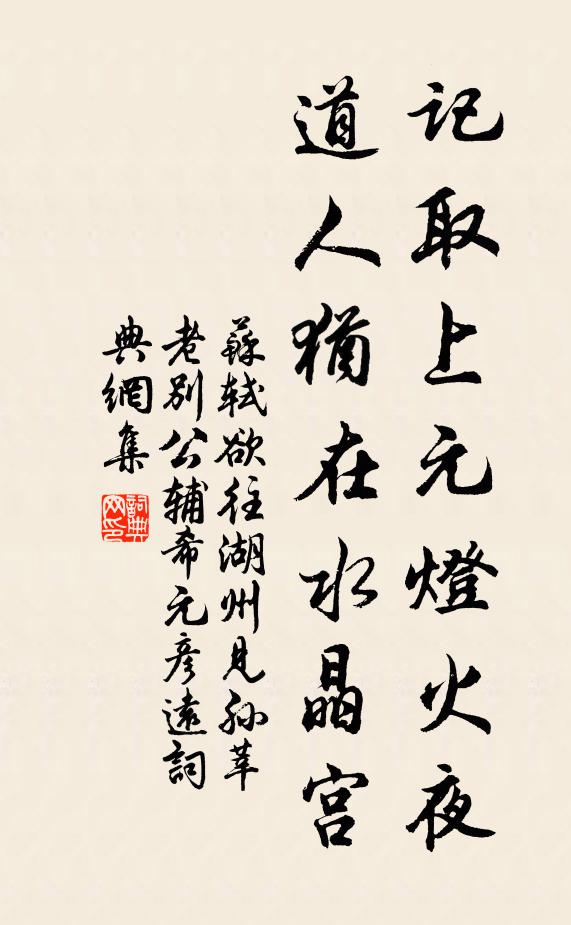 記取上元燈火夜
道人猶在水晶宮
蘇軾欲往湖州見孫莘
老別公輔希元彥遠詞
典網集
詞典
网印